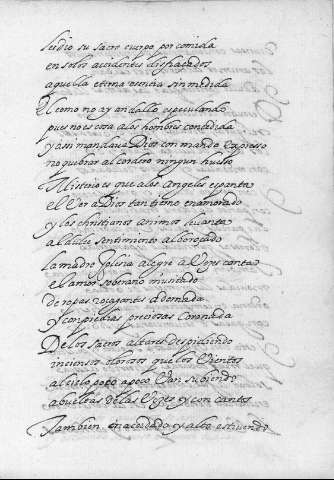 se dio su sacro cuerpo por comida
en solos accidentes disfraçados
aquella eterna esencia sin medida
El como no ay andallo especulando
pues no es cosa a los hombres concedida
y assi mandaua Dios con mando expresso
no quebrar al cordero ningun huesso
Misterio es que a los Angeles espanta
el Ver a Dios tan tierno enamorado
y los christianos animos leuanta
al dulce sentimiento alboroçado
La madre Yglesia alegre a Dios canta
el amor soberano inusitado
de ropas roçagantes adornada
y con piedras preciosas coronada
De los sacros altares despidiendo
incienso olorosos que los Vientos
al cielo poco a poco Van subiendo
a bueltas de las Vozes y con
Tambien en acordado y alto estruendo